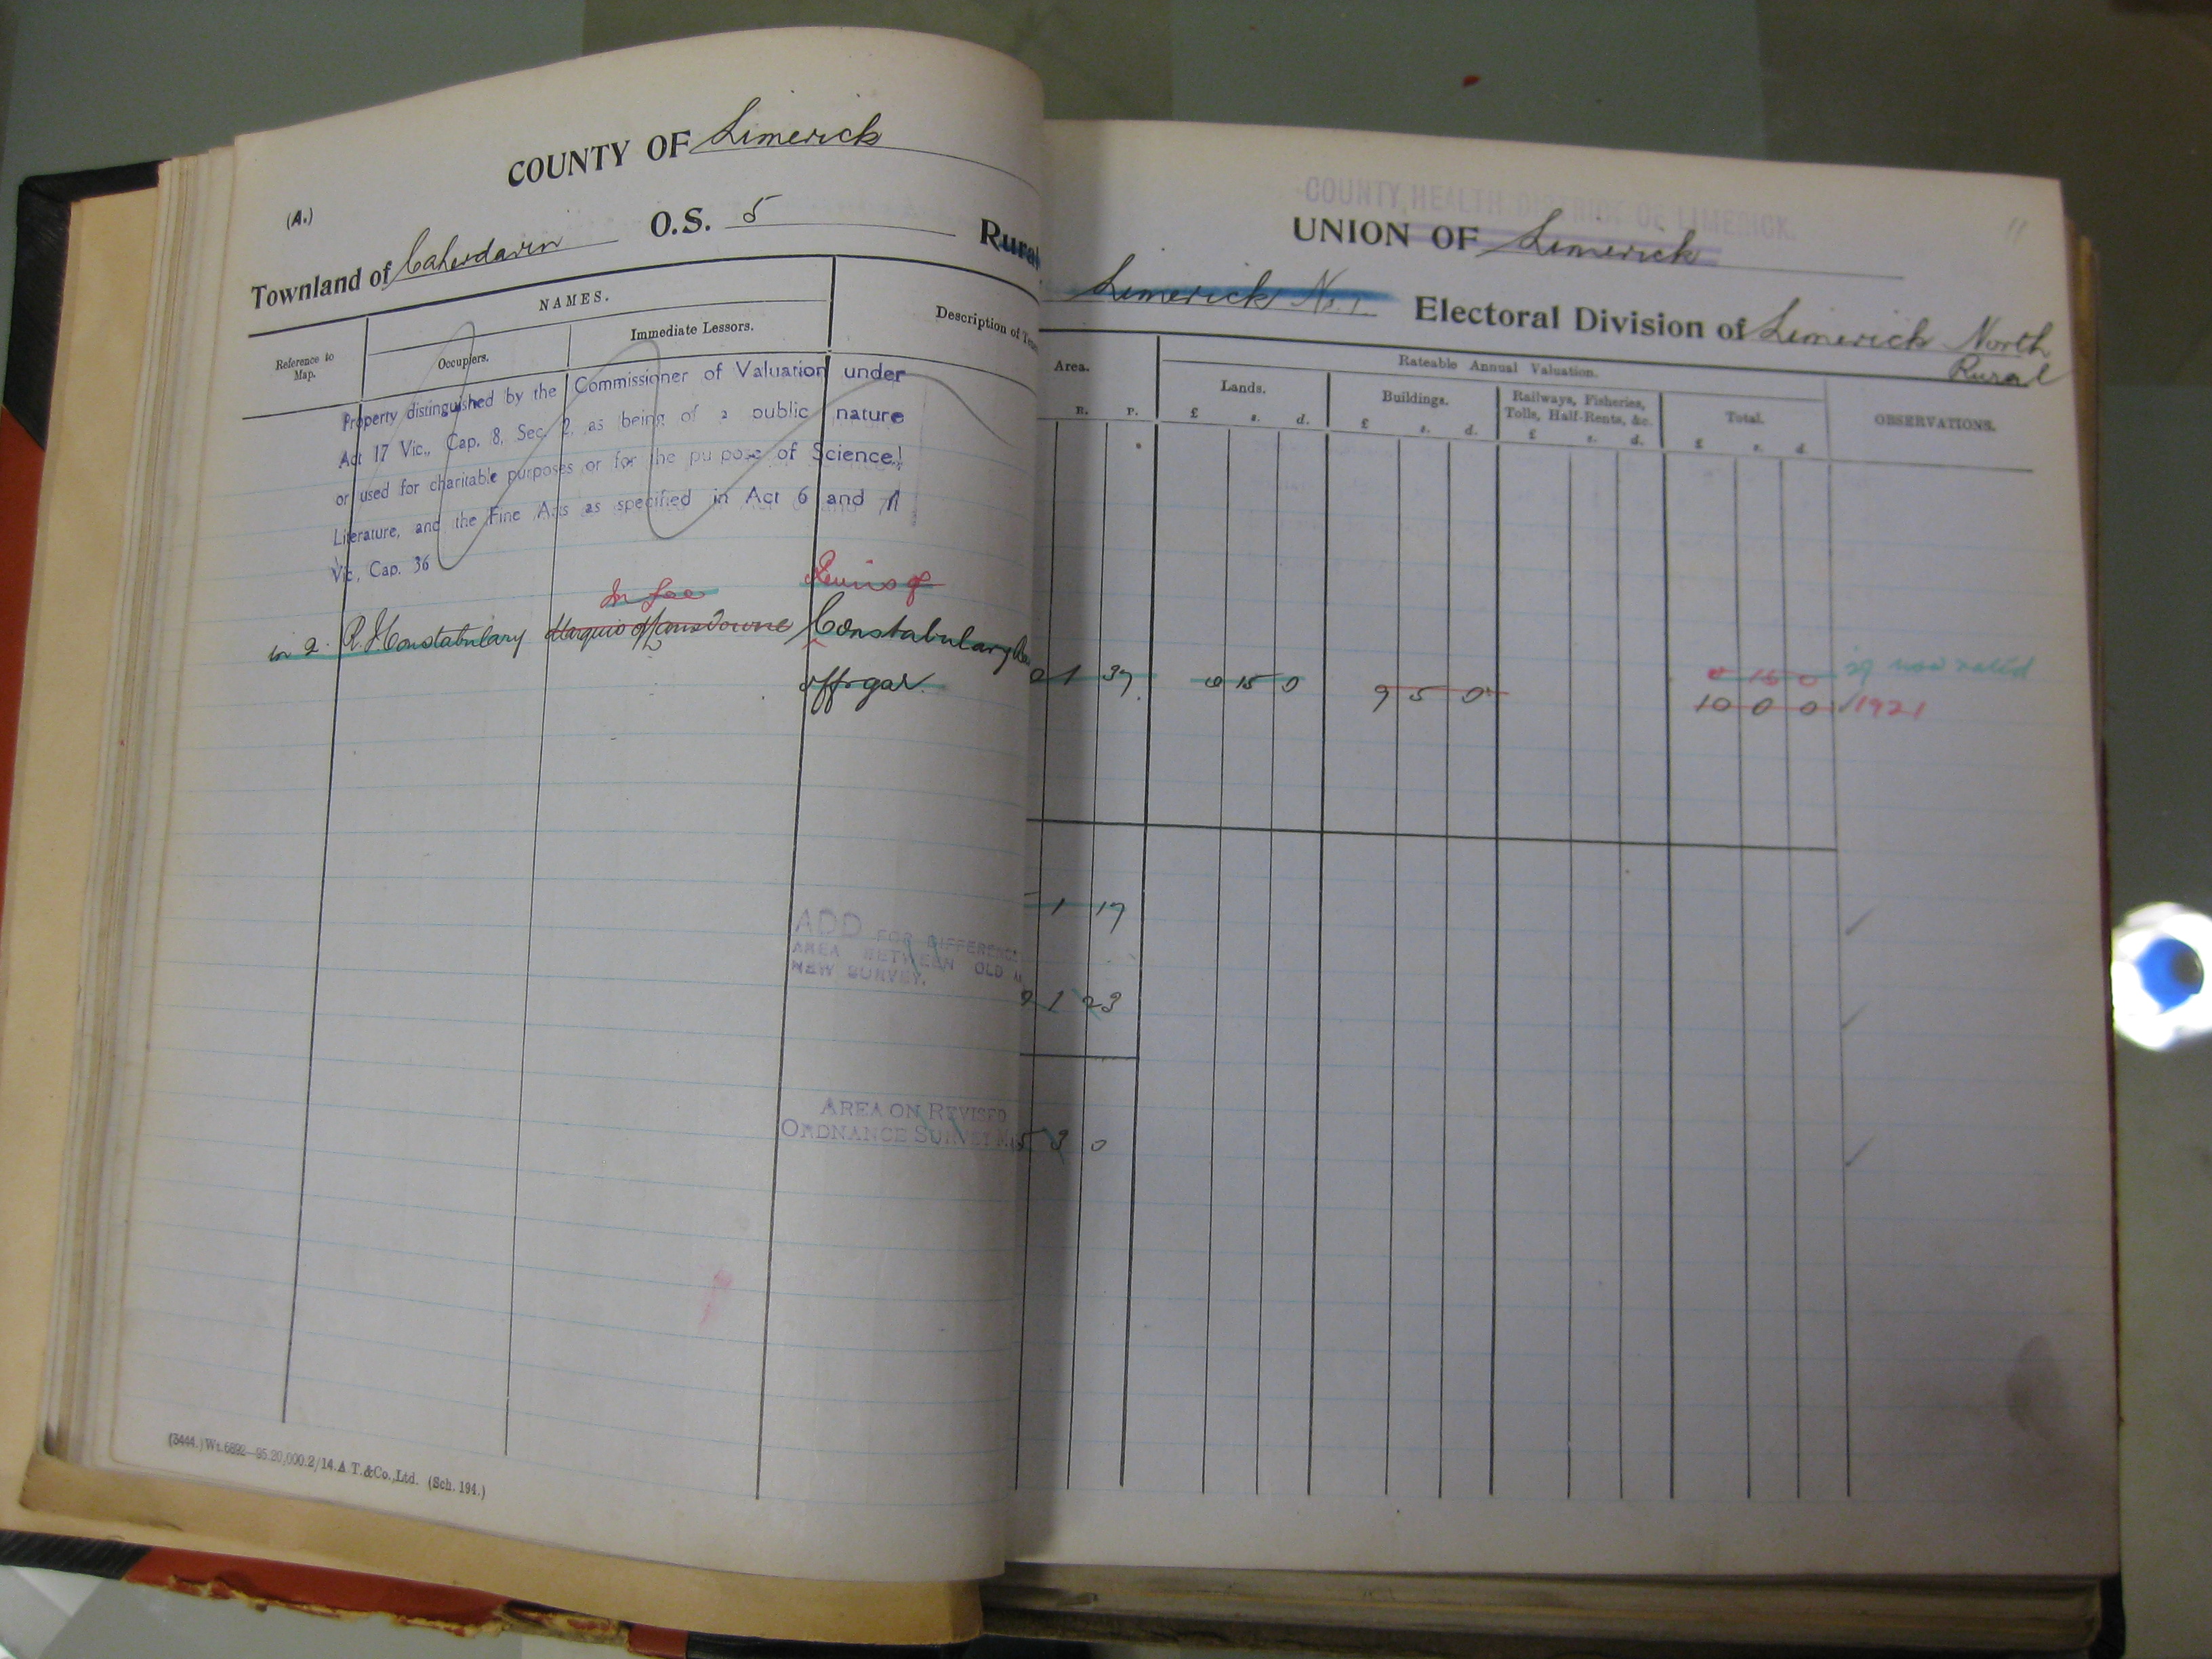 COUNTY OF Limerick
(A.)
Townland of Caherdavin O.S. 5 Rural
Reference to Map.
NAMES.
Occupiers.
Immediate Lessors.
Description of Ten
Property distinguished by the Commissioner of Valuation under
Act 17 Vic., Cap. 8, Sec. 2, as being of a public nature
or used for charitable purposes or for the pu pose of Science!
Literature, and the Fine Arts as specified in Act 6 and 7
Vic, Cap. 36
In fee Ruins of
in 2. R. I. Constabulary Marquis of Lansdowne Constabulary
off. & gar.
ADD FOR DIFFERENCE
AREA BETWEEN OLD
NEW SURVEY.
AREA ON REVISED
ORDNANCE SURVEY
(3444.) Wt.6892—95.20,000.2/14.A T.&Co.,Ltd. (Sch. 194.)
COUNTY HEALTH DISTRICT OF LIMERICK.
11
UNION OF Limerick
Limerick No. 1. Electoral Division of Limerick North
Rural
Area.
R. P.
Rateable Annual Valuation.
Lands.
£ s. d.
Buildings.
£ s. d.
Railways, Fisheries,
Tolls, Half-Rents, &c.
£ s. d.
Total.
£ s. d.
OBSERVATIONS.
0 15 0 now rated
0 1 37 0 15 0 9 5 0 10 0 0 1921
1 17
2 1 23
5 3 0